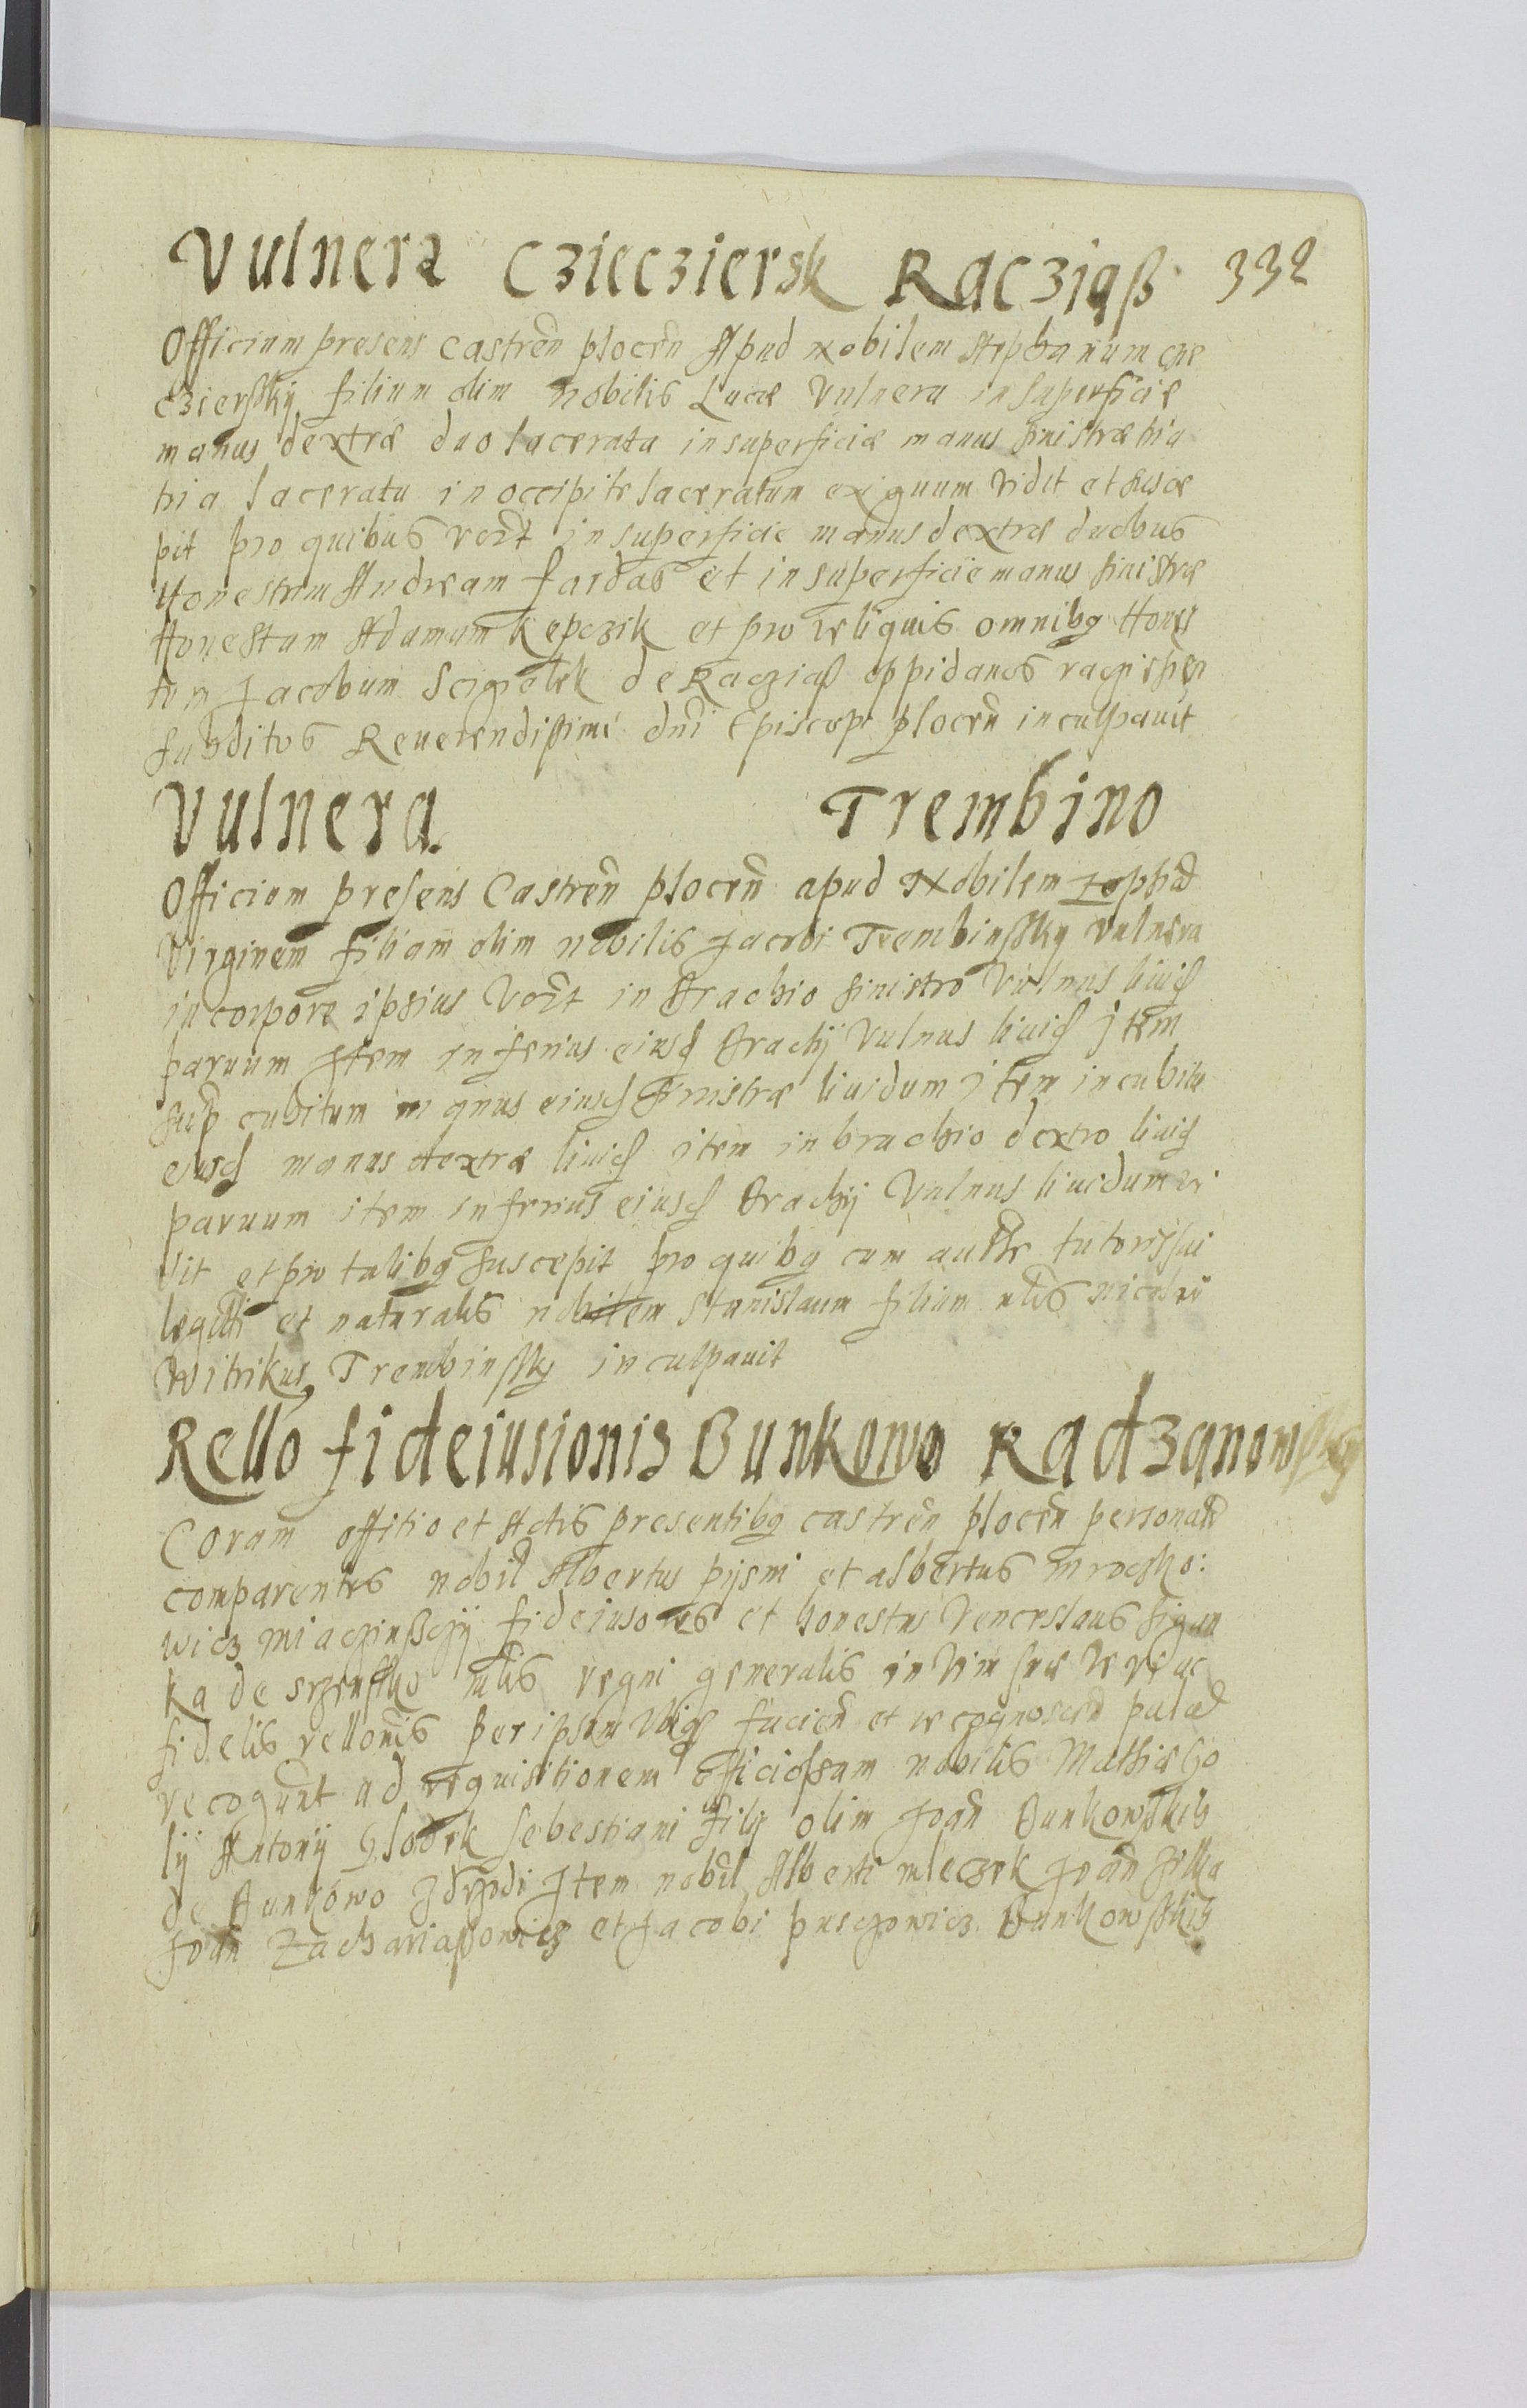 Vulnera Cziecziersk Racziąß 332
Officium presens Castren̄ plocen̄ Apud nobilem Stephanum Cze
czierssky filium olim nobilis Lucæ Vulnera in superficiæ
manus dextræ duo lacerata in superficiæ manus sinistræ tria
tria lacerata in occipite laceratum exiguum vidit et susce
pit pro quibus vert̄ in superficie manus dextræ duobus
Honestum Andream fardas et in superficie manus sinistræ
Honestum Adamum Kepczik et pro reliquis omnibq Hones
tum Jacobum de Racziąß oppidanos
subditos Reuerendissimi dn̄i Episcopi plocen̄ inculpauit
Vulnera Trembino
Officium presens Castren̄ plocen̄ apud Nobilem Zophiā
Virginem filiam olim nobilis Jacobi Trembinssky vulnera
in corpore ipsius vert̄ in Brachio sinistro Vulnus liuid
paruum Jtem inferius eiusd Brachij Vulnus liuid jtem
sup cubitum manus eiusd sinistræ liuidum item in cubitu
eiusd manus dextræ liuid item in brachio dextro liuid
paruum item inferius eiusd Brachij Vulnus liuidum vi
dit et pro talibq suscepit pro quibq cum autte tutoris sui
legitti et naturalis nobilem Stanislaum filium nlis nicolai
Witrikus Trembinssky inculpauit
Rello fideiusionis Bunkowo Radzanowsky
Coram offitio et Actis presentibq castren̄ plocen̄ personalr
comparentes nobil Albertus pysni et albertus mrocsko:
wicz miaczinssczy fideiusores et honestus Venceslaus figan
ka de srzensko mlis regni generalis in vim suæ veræ ac
fidelis rellonis per ipsum faciend et recognoscend
recognt ad requisitionem officiosam nobilis Mathiæ Go
ly Antonij Slodek Sebestiani filij olim Joan̄ Bunkowskich
de Bunkowo Jtem nobil Alberti mleczek Joan̄
Joan̄ Zachariassowicz et Jacobi pusczowicz Bunkowskich